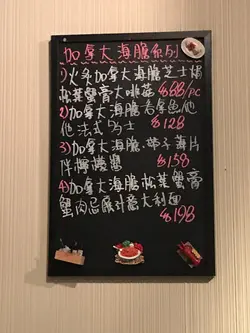 加拿大海膽系列
1)火炙加拿大海膽芝士焗
松葉蟹膏大啡菇 $88/PC
2)加拿大海膽吞拿魚他
他法式多士 $128
3)加拿大海膽帶子薄片
伴檸檬醬 $158
4)加拿大海膽松葉蟹膏
蟹肉忌廉汁意大利麵 $198